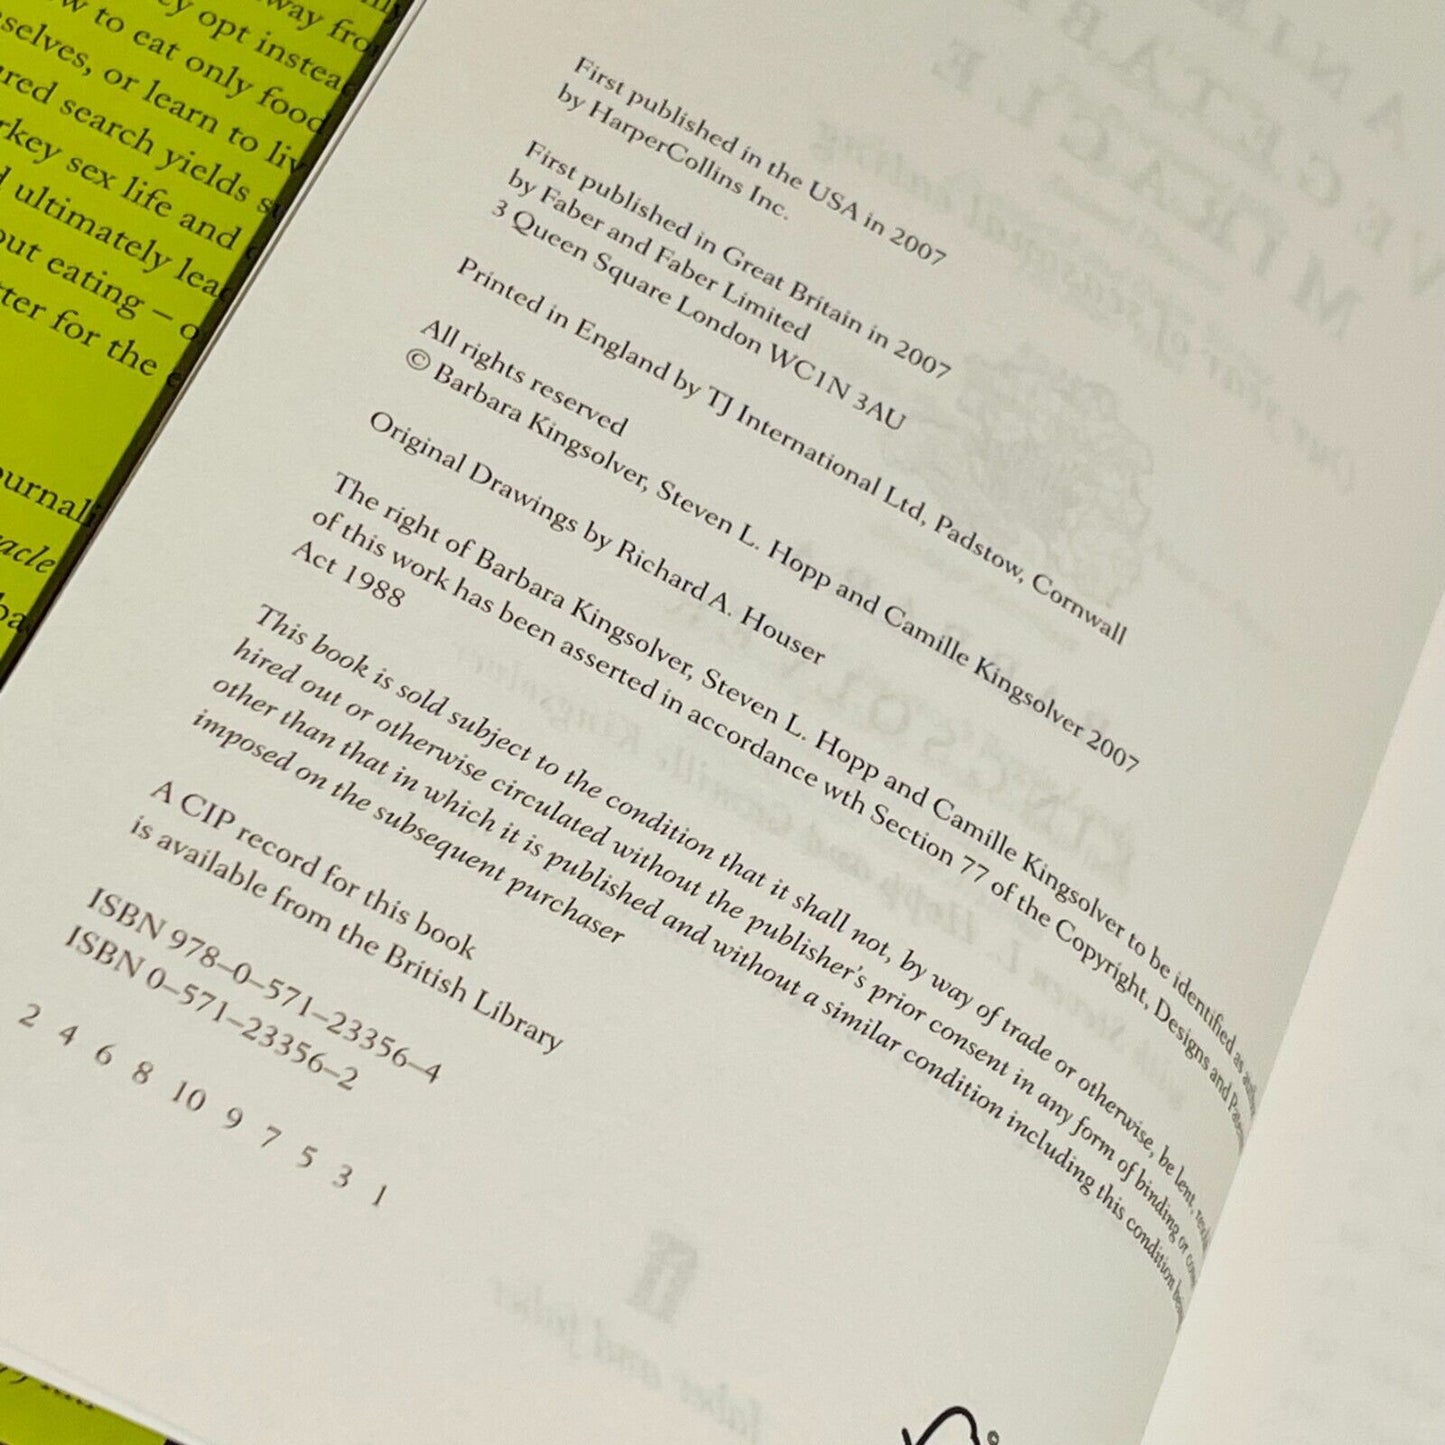 way from
ey opt instea
ow to eat only food
selves, or learn to liv
red search yields su
rkey sex life and
d ultimately lea
out eating – o
tter for the e
ournali
racle
First published in the USA in 2007
by HarperCollins Inc.
First published in Great Britain in 2007
by Faber and Faber Limited
3 Queen Square London WC1N 3AU
Printed in England by TJ International Ltd, Padstow, Cornwall
All rights reserved
© Barbara Kingsolver, Steven L. Hopp and Camille Kingsolver 2007
Original Drawings by Richard A. Houser
The right of Barbara Kingsolver, Steven L. Hopp and Camille Kingsolver to be identified as
of this work has been asserted in accordance wth Section 77 of the Copyright, Designs and
Act 1988
This book is sold subject to the condition that it shall not, by way of trade or otherwise, be lent,
hired out or otherwise circulated without the publisher's prior consent in any form of binding or
other than that in which it is published and without a similar condition including this condition
imposed on the subsequent purchaser
A CIP record for this book
is available from the British Library
ISBN 978–0–571–23356–4
ISBN 0–571–23356–2
2 4 6 8 10 9 7 5 3 1